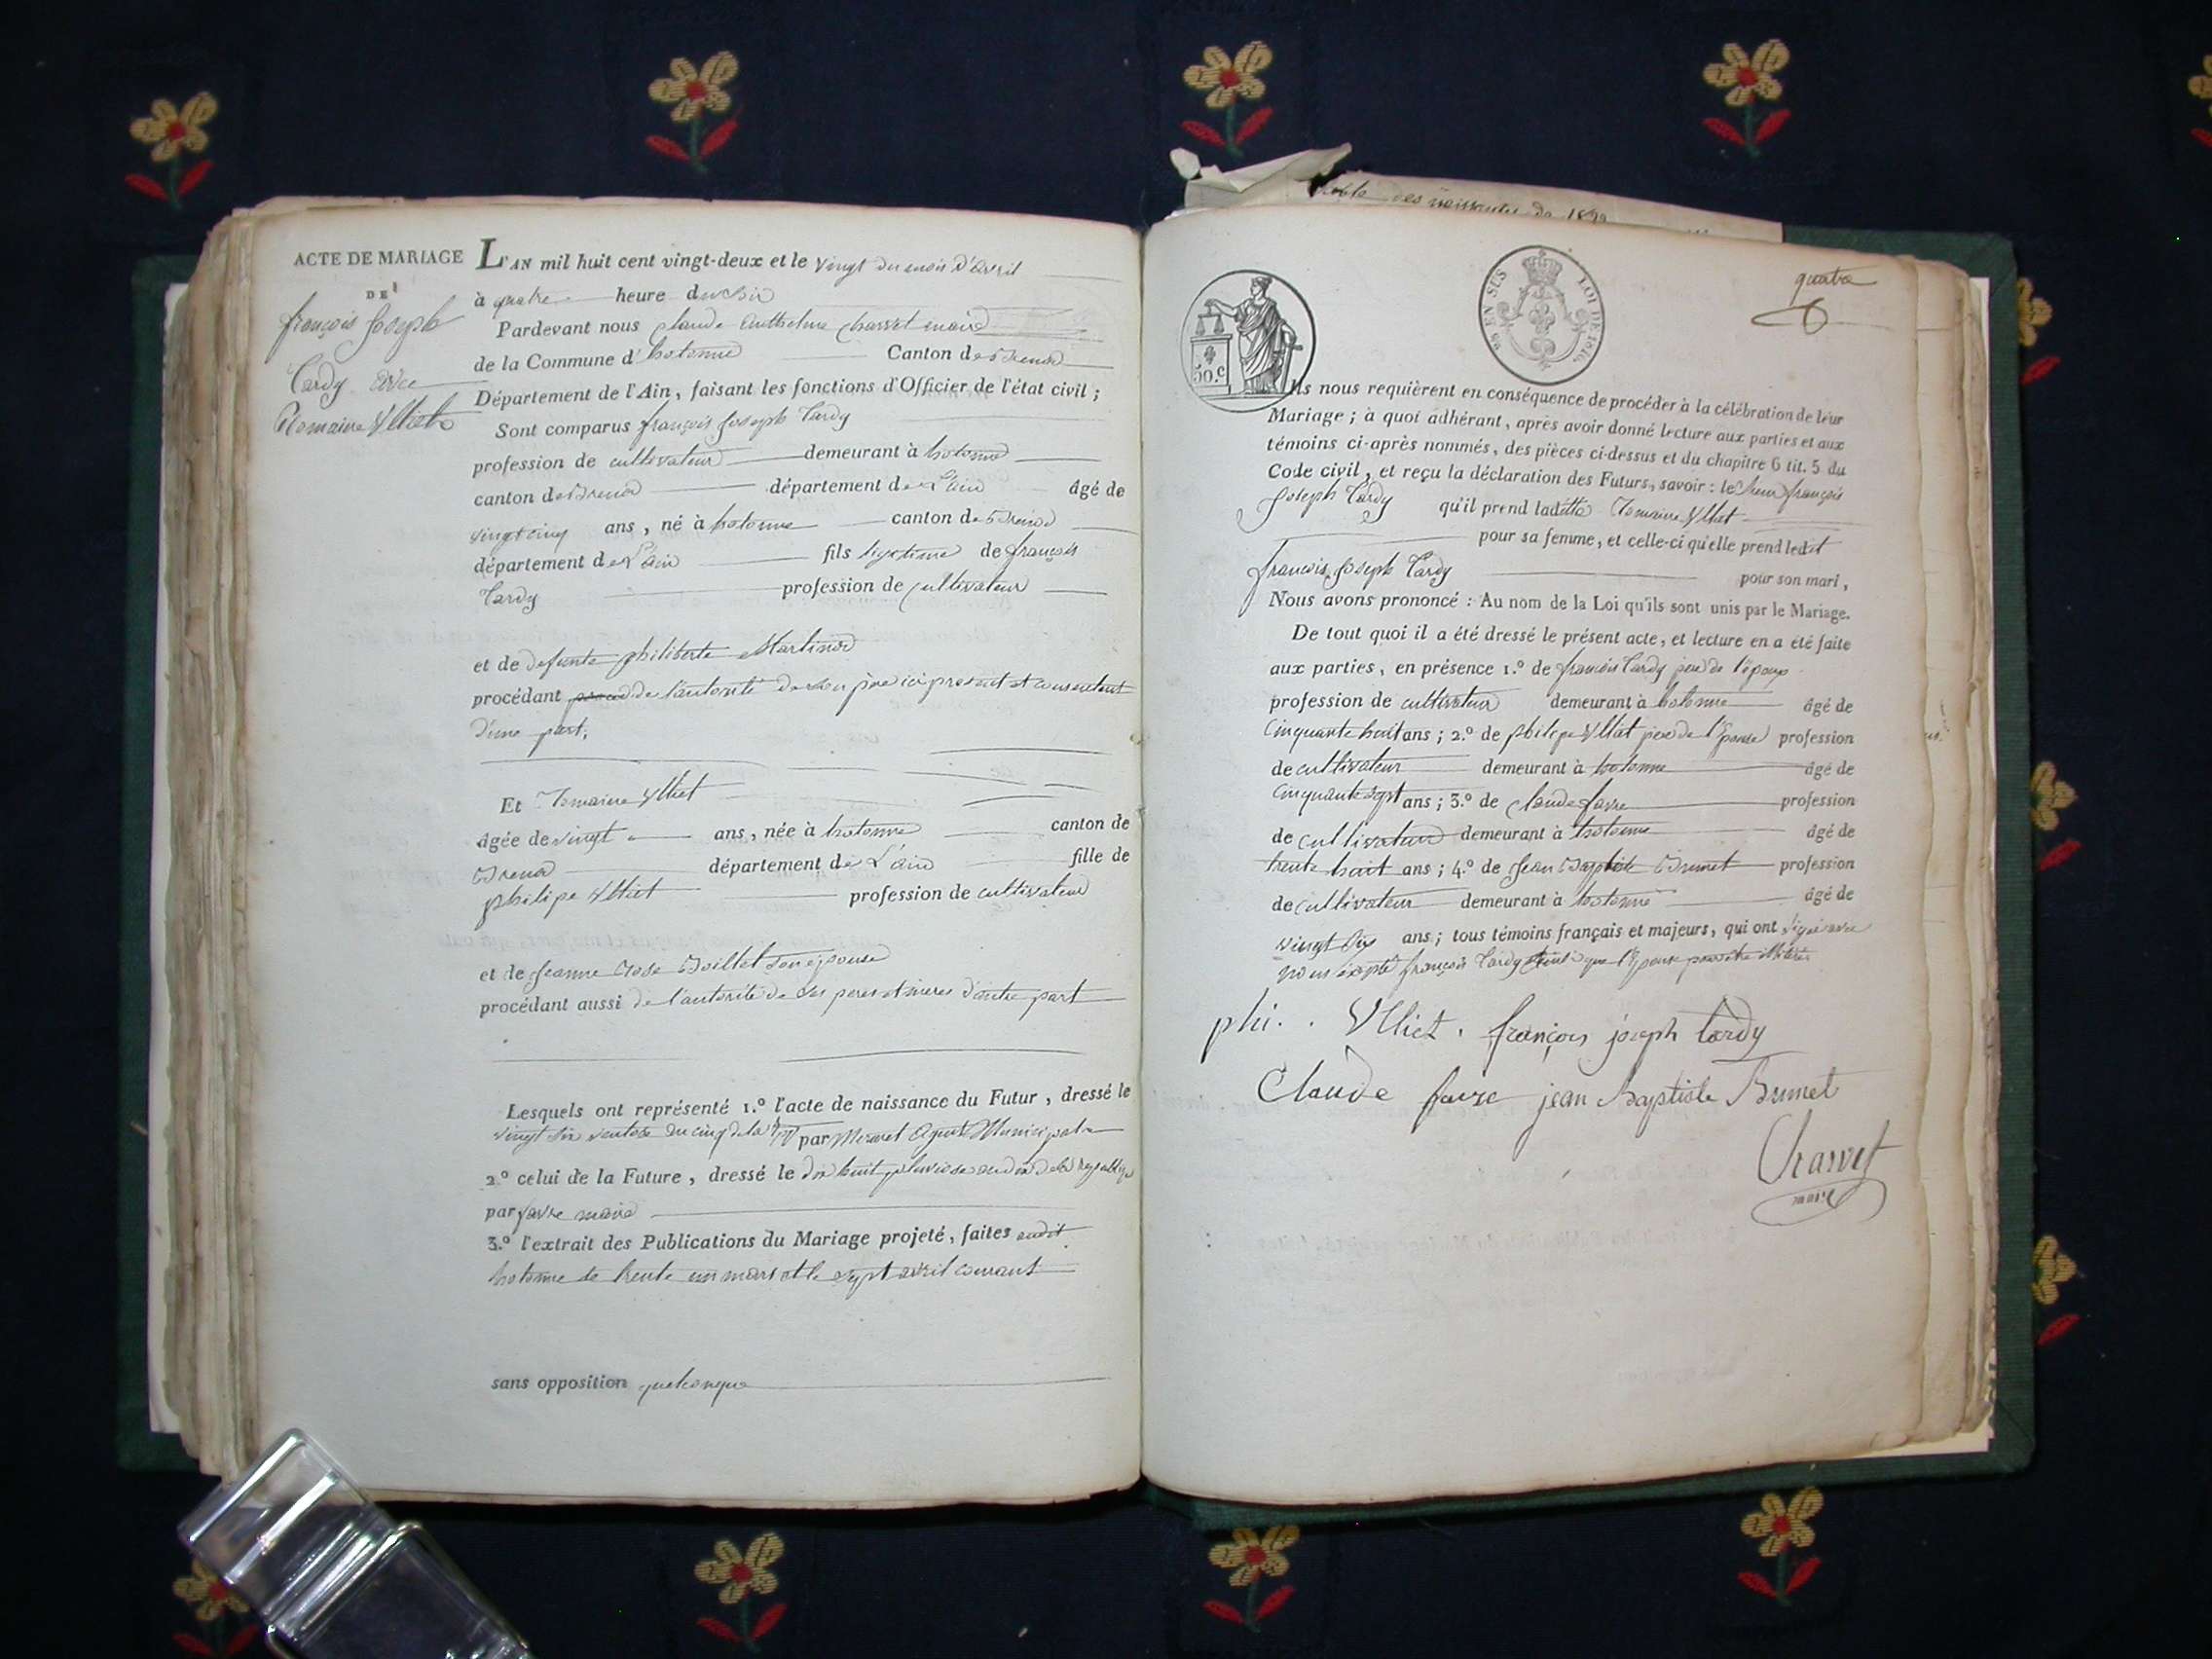 ACTE DE MARIAGE
DE
françois Joseph
Tardy avec
Romaine Ulliet
L'AN mil huit cent vingt-deux et le vingt du mois d'avril
à quatre heure du soir
Pardevant nous Claude Anthelme Charvet maire
de la Commune d'hotonne Canton de Brenod
Département de l'Ain, faisant les fonctions d'Officier de l'état civil ;
Sont comparus françois Joseph Tardy
profession de cultivateur demeurant à hotonne
canton de Brenod département de L'ain âgé de
vingt cinq ans, né à hotonne canton de Brenod
département de L'ain fils legitime de françois
Tardy profession de cultivateur
et de defunte philiberte Martinod
procédant de l'autorité de son père ici present et consentent
d'une part;
Et Romaine Ulliet
âgée de vingt ans, née à hotonne canton de
Brenod département de L'ain fille de
philipe Ulliet profession de cultivateur
et de Jeanne Rose Boillet son épouse
procédant aussi de l'autorité de ses peres et meres d'autre part
Lesquels ont représenté 1.º l'acte de naissance du Futur, dressé le
vingt six ventose du cinq de la par Mermet Agent Municipal
2.º celui de la Future, dressé le dix huit pluviose an dix de la republique
par favre maire
3.º l'extrait des Publications du Mariage projeté, faites audit
hotonne le trente un mars et le sept avril courant
sans opposition quelconque
Table des naissantes de 18
50.C
EN SUS LOI DE 1816
quatre
Ils nous requièrent en conséquence de procéder à la célébration de leur
Mariage ; à quoi adhérant, après avoir donné lecture aux parties et aux
témoins ci-après nommés, des pièces ci-dessus et du chapitre 6 tit. 5 du
Code civil, et reçu la déclaration des Futurs, savoir : le sieur françois
Joseph Tardy qu'il prend ladette Romaine Ulliet
pour sa femme, et celle-ci qu'elle prend ledit
francois Joseph Tardy pour son mari,
Nous avons prononcé : Au nom de la Loi qu'ils sont unis par le Mariage.
De tout quoi il a été dressé le présent acte, et lecture en a été faite
aux parties, en présence 1.º de francois Tardy pere de l'époux
profession de cultivateur demeurant à hotonne âgé de
Cinquante huit ans ; 2.º de philipe Ulliet pere de l'Epouse profession
de cultivateur demeurant à hotonne âgé de
Cinquante sept ans ; 3.º de Claude favre profession
de cultivateur demeurant à hotonne âgé de
trente huit ans ; 4.º de Jean Baptiste Brunet profession
de cultivateur demeurant à hotonne âgé de
vingt six ans ; tous témoins français et majeurs, qui ont signé avec
nous éxepté françois Tardy ainsi que l'Epouse pour être
phi. . Ulliet . françois joseph tardy
Claude favre jean Baptiste Brunet
Charvet
maire